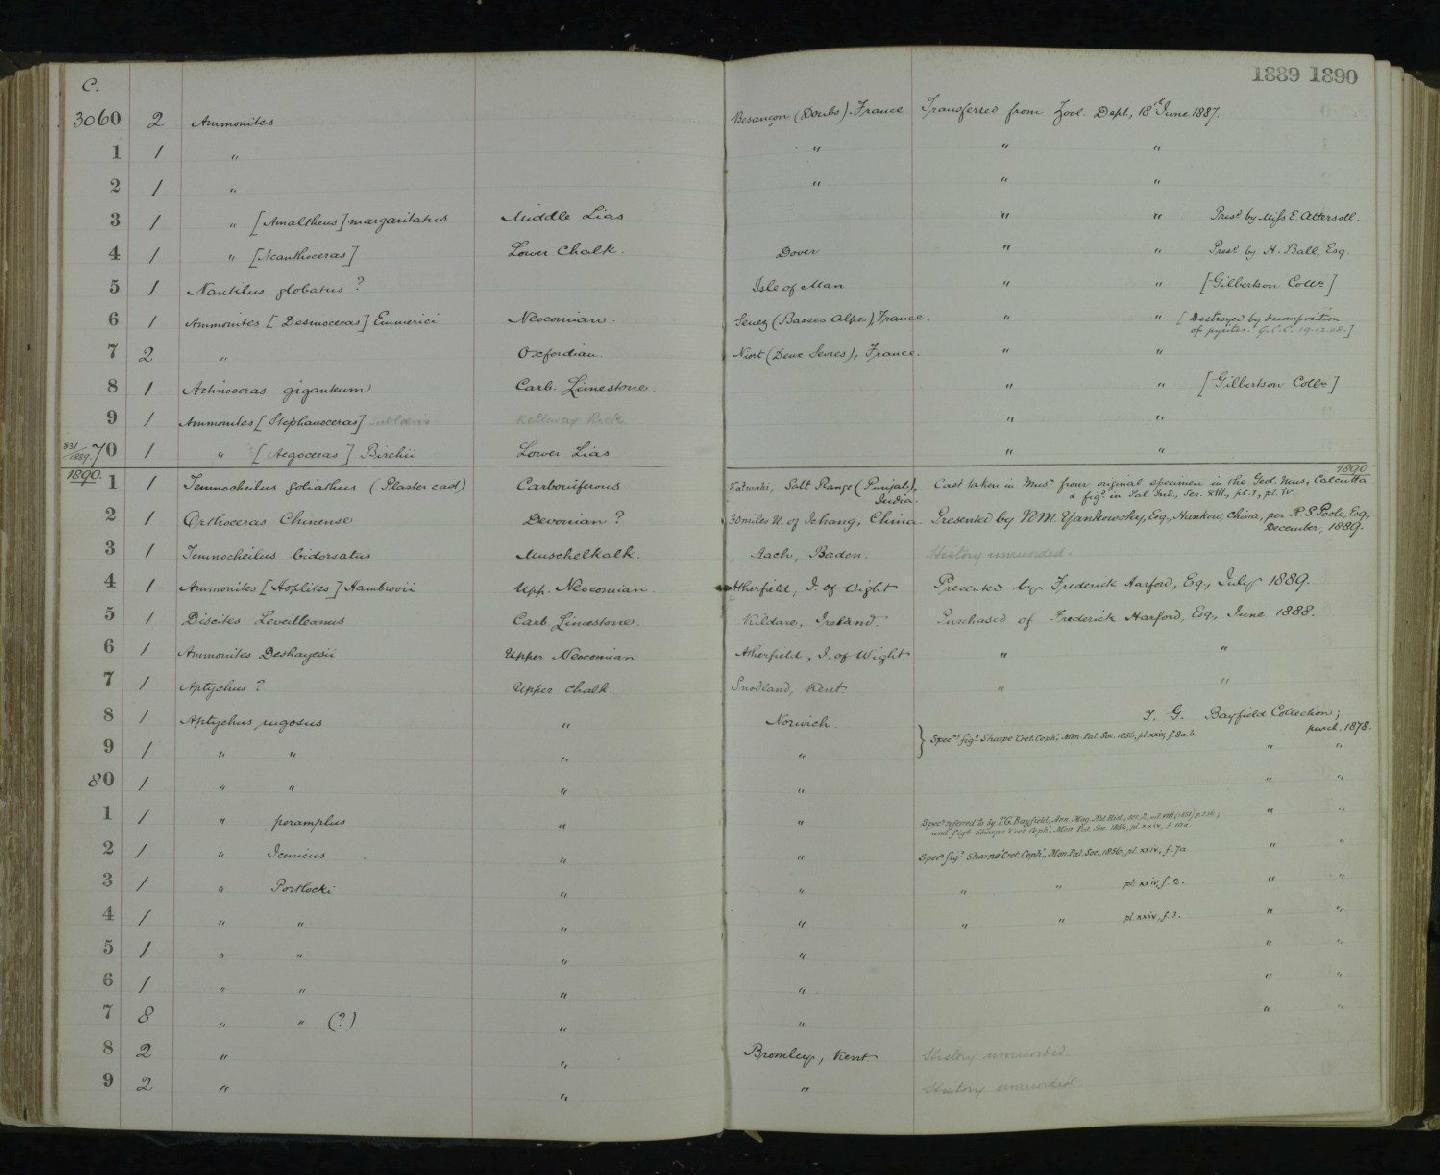 1889 1890
C.
3060 2 Ammonites Besançon (Doubs) France Transferred from Zool. Dept., 18th June 1887.
1 1 " " " "
2 1 " " " "
3 1 " [Amaltheus] margaritatus Middle Lias " " Presd by Miss E. Attersoll.
4 1 " [Acanthoceras] Lower Chalk. Dover " " Presd by H. Ball, Esq.
5 1 Nautilus globatus ? Isle of Man " " [Gilbertson Colln]
6 1 Ammonites [Desmoceras] Emmerici Neocomian. Senez (Basses Alpes), France. " " [Destroyed by decomposition
of pyrites. G.C.C. 19.12.08.]
7 2 " Oxfordian. Niort (Deux Sevres), France. " "
8 1 Actinoceras giganteum Carb. Limestone. " " [Gilbertson Colln]
9 1 Ammonites [Stephanoceras] sublaevis Kellaway Rock " "
831/1889. 70 1 " [Aegoceras] Birchii Lower Lias " "
1890. 1890
1 1 Temnocheilus goliathus (Plaster cast) Carboniferous Salt Range (Punjab), India. Cast taken in Musm from original specimen in the Geol. Mus., Calcutta
& figd in Pal. Ind., Ser. XIII, pt. 1, pl. iv.
2 1 Orthoceras Chinense Devonian ? 30 miles N. of Ichang, China Presented by M. Yankowsky, Esq., Hankow, China, per R. S. Poole, Esq.,
December, 1889.
3 1 Temnocheilus bidorsatus Muschelkalk. Aach, Baden. History unrecorded.
4 1 Ammonites [Hoplites] Hambrovii Upp. Neocomian. Atherfield, I. of Wight Presented by Frederick Harford, Esq., July 1889.
5 1 Discites Leveilleanus Carb. Limestone. Kildare, Ireland. Purchased of Frederick Harford, Esq., June 1888.
6 1 Ammonites Deshayesii Upper Neocomian Atherfield, I. of Wight " "
7 1 Aptychus ? Upper Chalk Snodland, Kent. " "
8 1 Aptychus rugosus " Norwich. T. G. Bayfield Collection;
purch. 1878.
9 1 " " " " } Specns figd Sharpe Cret. Ceph., Mon. Pal. Soc. 1856, pl. xxiv, f. 8a.b. " "
80 1 " " " " " "
1 1 " peramplus " " Specn referred to by T.G. Bayfield, Ann. Mag. Nat. Hist., ser. 2, vol. VIII (1851) p. 236;
and figd Sharpe Cret. Ceph., Mon. Pal. Soc. 1856, pl. xxiv, f. 10a. " "
2 1 " Icenicus " " Specn figd Sharpe Cret. Ceph., Mon. Pal. Soc. 1856, pl. xxiv, f. 7a " "
3 1 " Portlocki " " " " pl. xxiv, f. 2. " "
4 1 " " " " " " pl. xxiv, f. 3. " "
5 1 " " " " " "
6 1 " " " " " "
7 8 " " (?) " " " "
8 2 " " Bromley, Kent History unrecorded.
9 2 " " " History unrecorded.